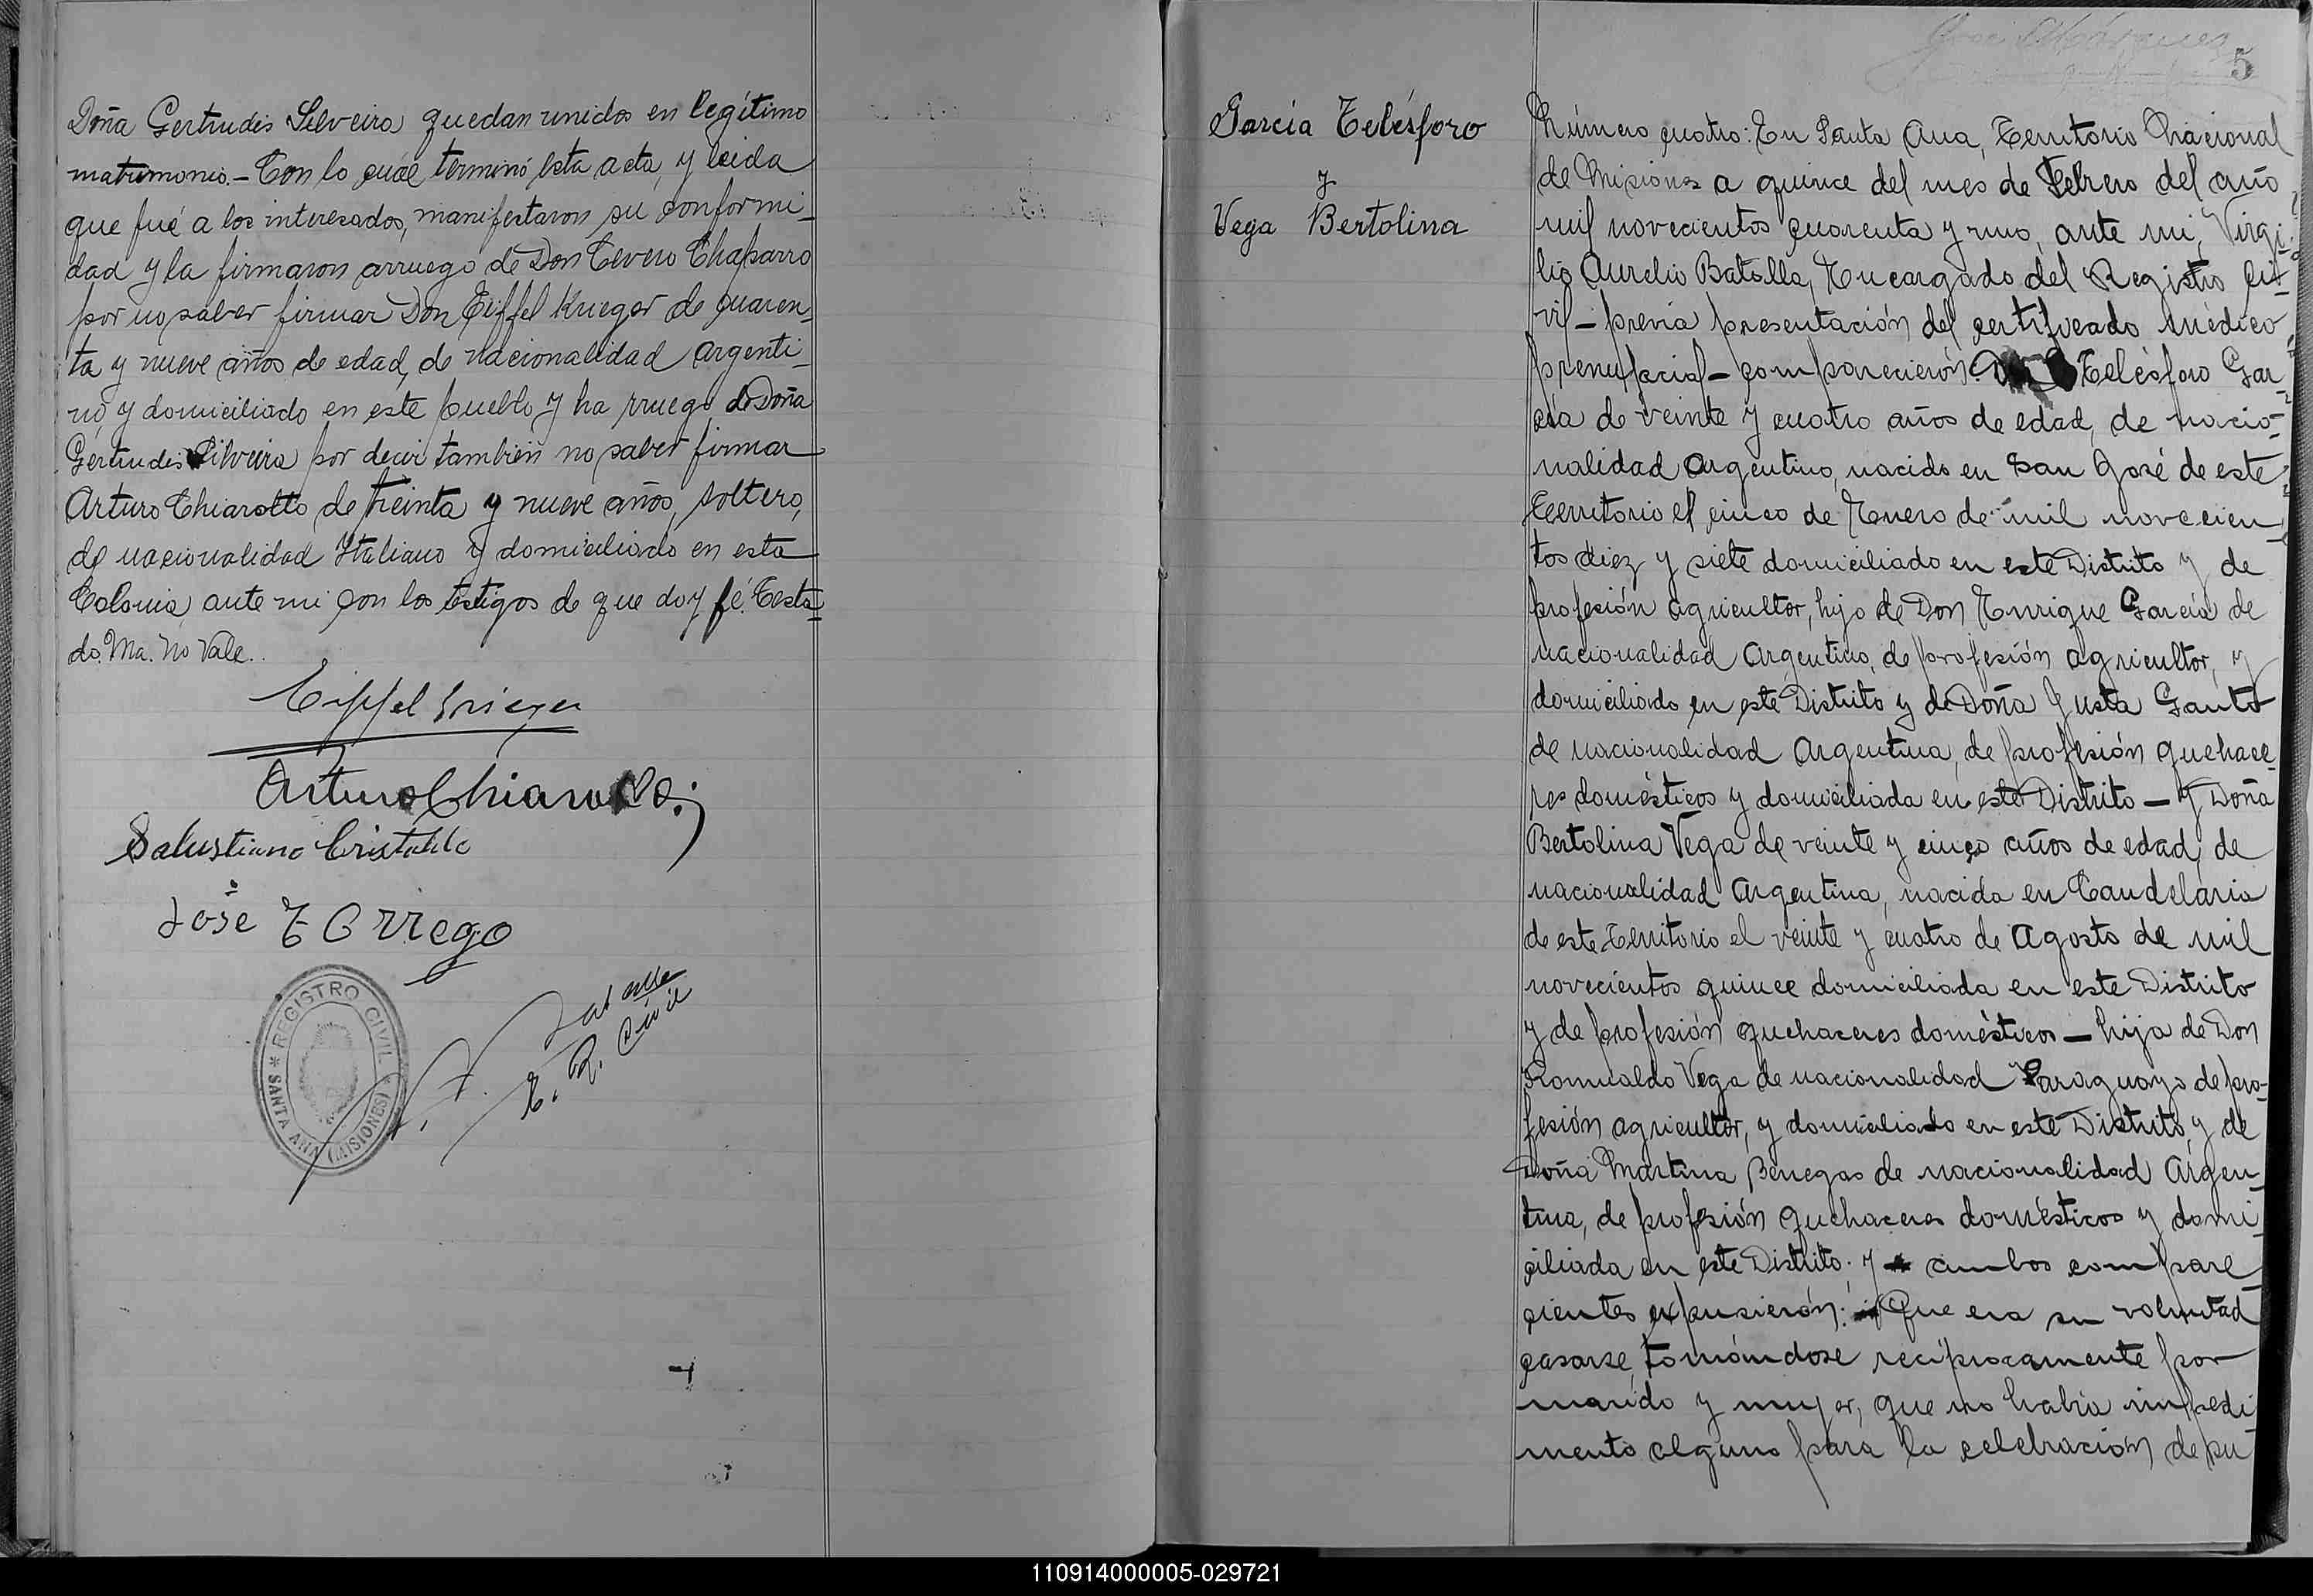 Doña Gertrudis Silveira quedan unidos en legítimo
matrimonio.- Con lo cuál terminó esta acta, y leida
que fué a los interesados, manifestaron su conformi_
dad y la firmaron arruego de Don Cevero Chaparro
por no saber firmar Don Eiffel Krieger de cuaren_
ta y nueve años de edad, de nacionalidad argenti_
no, y domiciliado en este pueblo y ha rruego de Doña
Gertrudis Silveira por decir también no saber firmar
Arturo Chiarotto de treinta y nueve años, soltero,
de nacionalidad Italiano y domiciliado en esta
Colonia, ante mi con los testigos de que doy fé. Testa_
do. Ma. No Vale.
Eiffel Krieger
Arturo Chiarotto
Salustiano Cristaldo
José E Orrego
V. A. Batalla
E. R. Civil
* REGISTRO CIVIL *
SANTA ANA (MISIONES)
5
García Telésforo
y
Vega Bertolina
Número cuatro: En Santa Ana, Territorio Nacional
de Misiones a quince del mes de Febrero del año
mil novecientos cuarenta y uno, ante mi, Virgi_
lio Aurelio Batalla, Encargado del Registro Ci_
vil – previa presentación del certificado médico
prenupcial – comparecieron: Telésforo Gar_
cía de veinte y cuatro años de edad, de nacio_
nalidad Argentino, nacido en San José de este
Territorio el cinco de Enero de mil novecien_
tos diez y siete domiciliado en este Distrito y de
profesión agricultor, hijo de Don Enrique García de
nacionalidad Argentino, de profesión agricultor, y
domiciliado en este Distrito y de Doña Justa Gauto
de nacionalidad Argentina, de profesión quehace_
res domésticos y domiciliada en este Distrito – y Doña
Bertolina Vega de veinte y cinco años de edad, de
nacionalidad Argentina, nacida en Candelaria
de este Territorio el veinte y cuatro de Agosto de mil
novecientos quince domiciliada en este Distrito
y de profesión quehaceres domésticos – hija de Don
Romualdo Vega de nacionalidad Paraguayo de pro_
fesión agricultor, y domiciliado en este Distrito, y de
Doña Martina Benegas de nacionalidad Argen_
tina, de profesión quehaceres domésticos y domi_
ciliada en este Distrito; y ambos compare_
cientes expusieron: Que era su voluntad
casarse, tomándose recíprocamente por
marido y mujer, que no había impedi_
mento alguno para la celebración de su
110914000005-029721